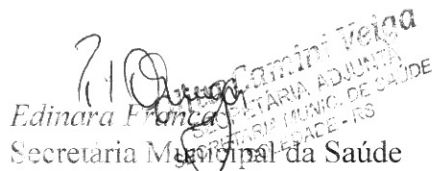 Camini Veiga
SECRETÁRIA ADJUNTA
SECRETARIA MUNIC. DE SAÚDE
- RS
Edinara França
Secretária Municipal da Saúde